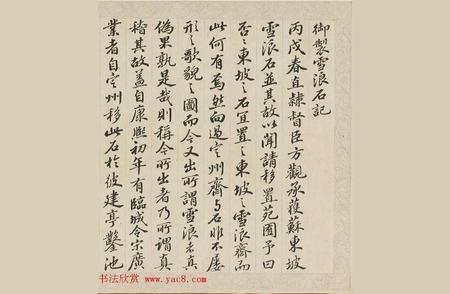 御製雪浪石記
丙戌春直隸督臣方觀承獲蘇東坡
雪浪石並其故以聞請移置苑囿予曰
否々東坡之石宜置之東坡之雪浪齋而
此何有焉然向過定州齋與石非不屢
形之歌貌之圖而今又出所謂雪浪者真
偽果孰是哉則稱今所出者乃所謂真
稽其故蓋自康熙初年有臨城令宋廣
業者自定州移此石於彼建亭鑿池
书法欣赏 www.yac8.com